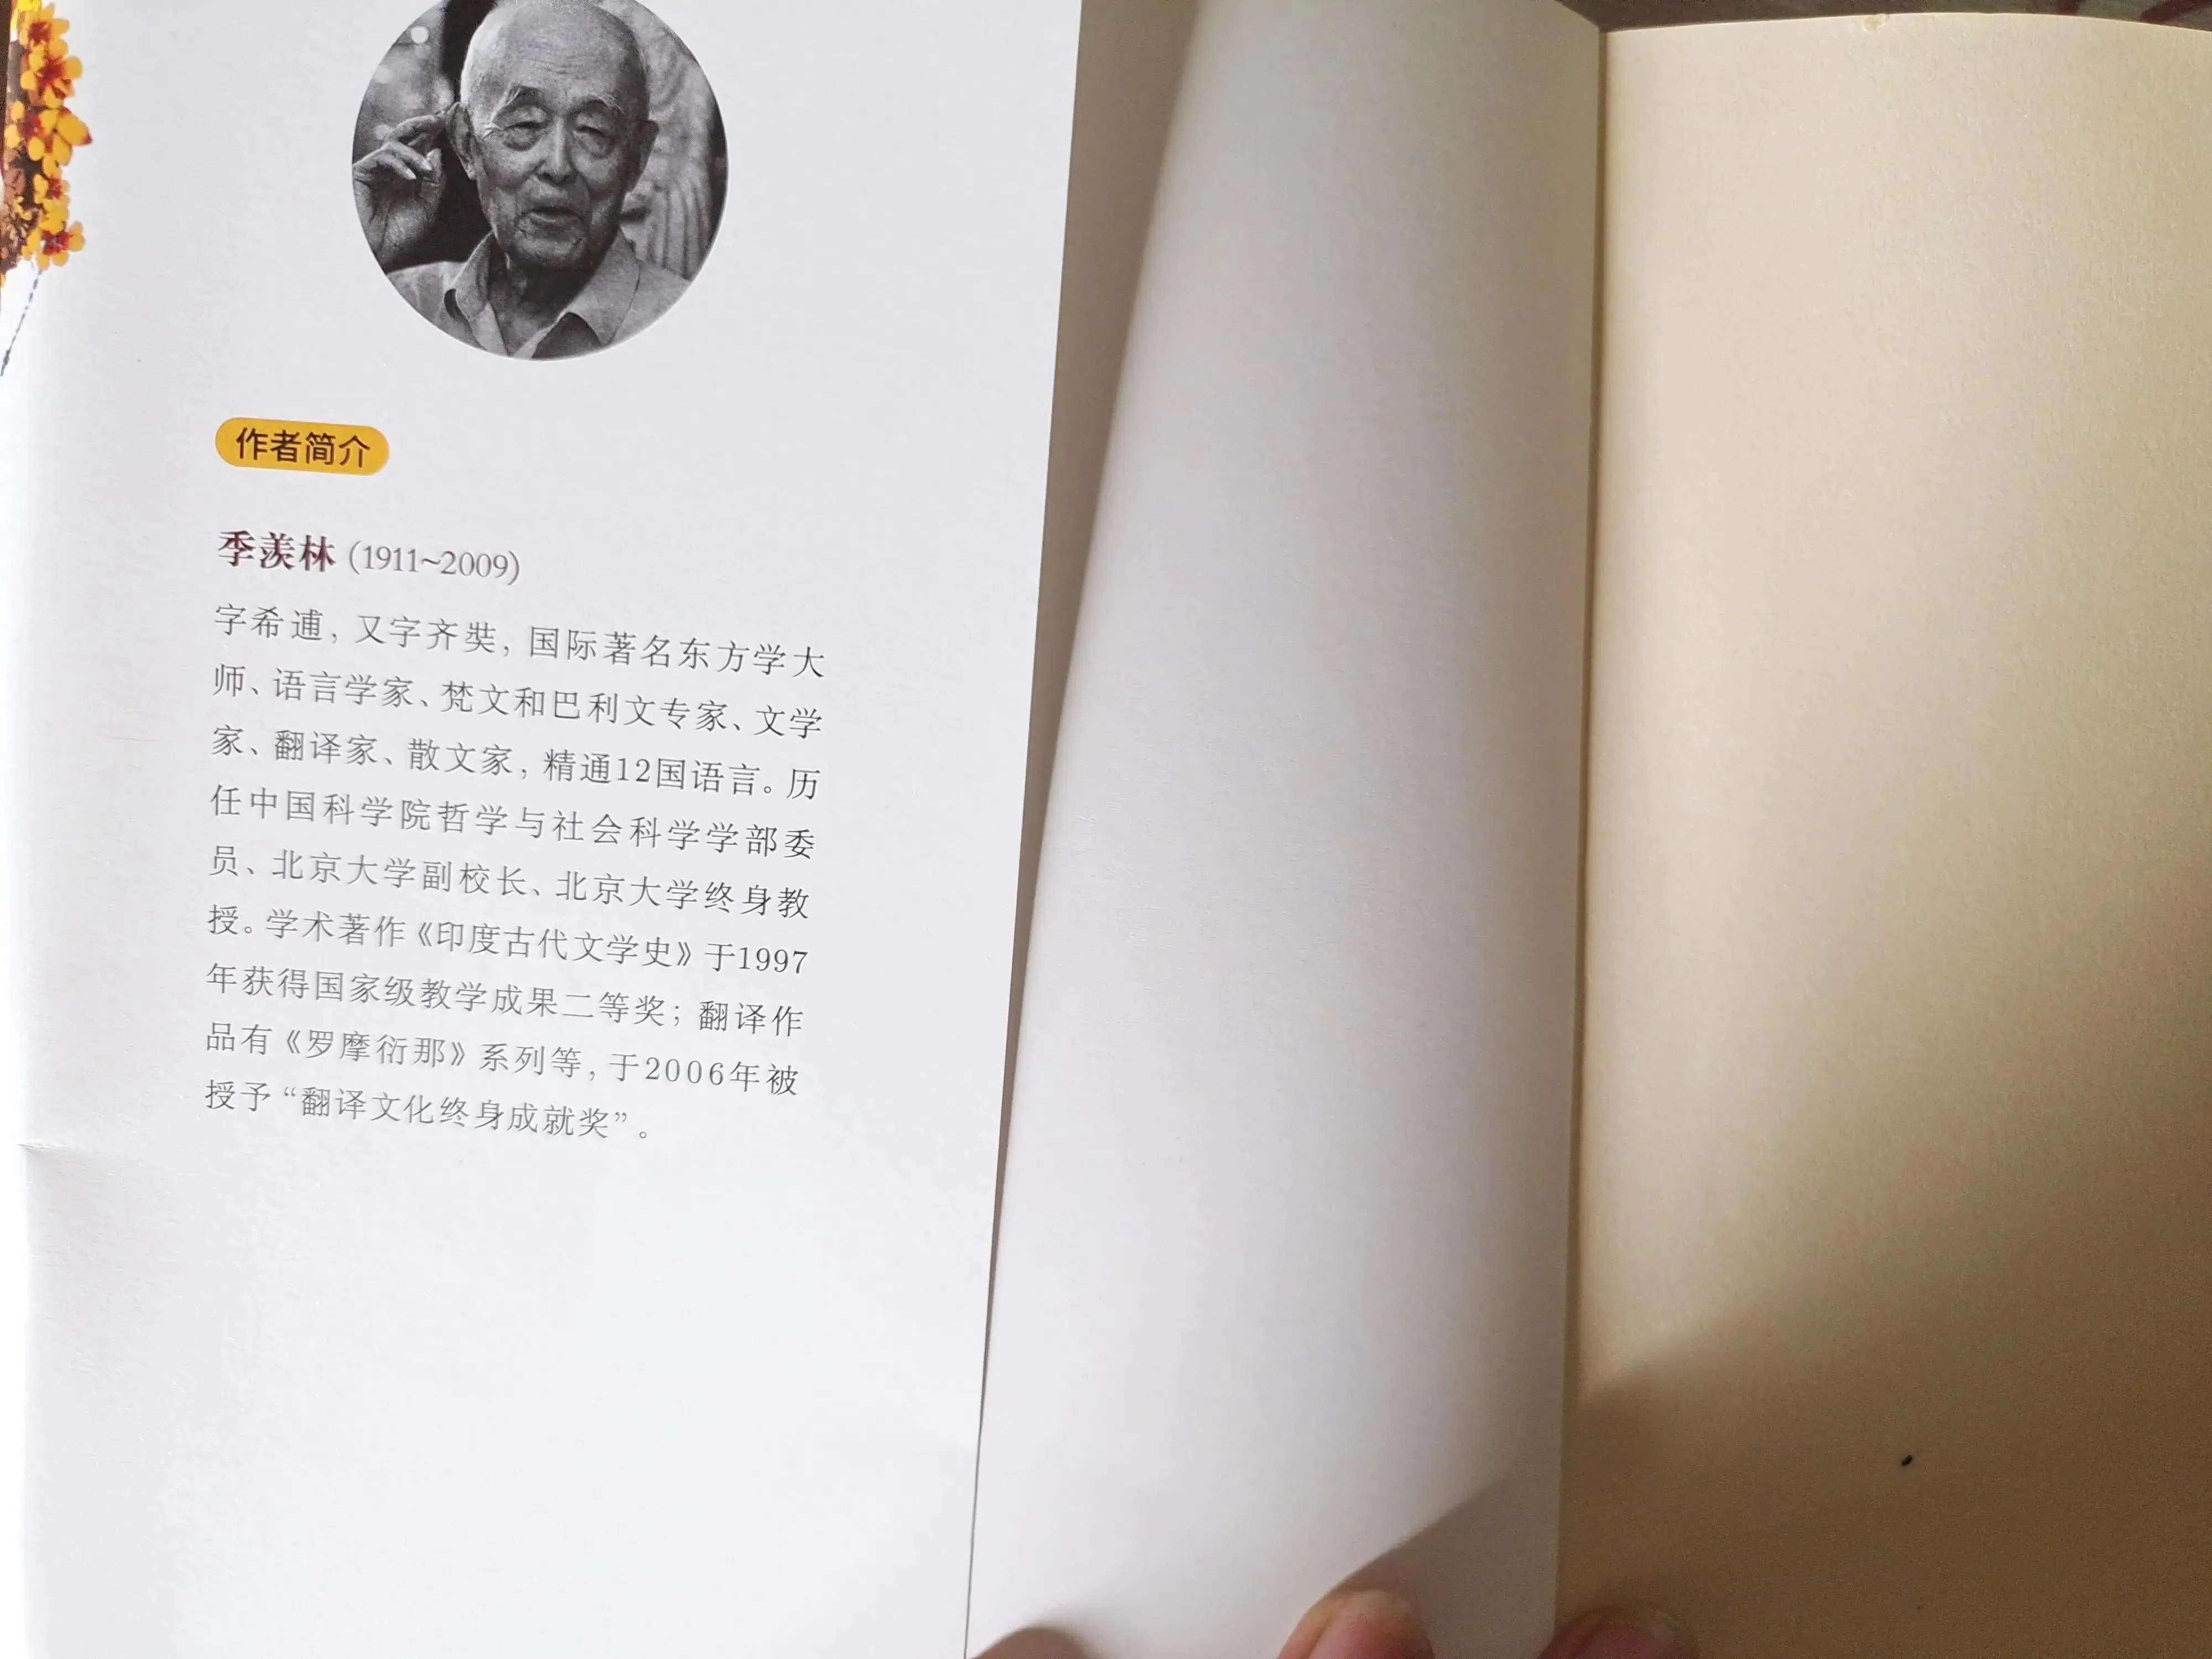 作者简介
季羡林 (1911~2009)
字希逋，又字齐奘，国际著名东方学大
师、语言学家、梵文和巴利文专家、文学
家、翻译家、散文家，精通12国语言。历
任中国科学院哲学与社会科学学部委
员、北京大学副校长、北京大学终身教
授。学术著作《印度古代文学史》于1997
年获得国家级教学成果二等奖；翻译作
品有《罗摩衍那》系列等，于2006年被
授予“翻译文化终身成就奖”。